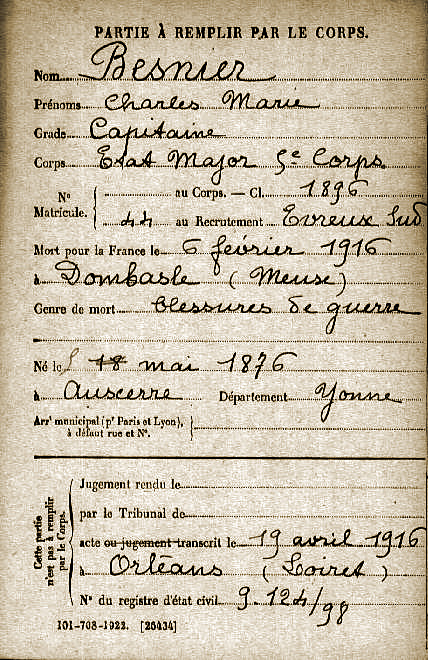 PARTIE À REMPLIR PAR LE CORPS.
Nom Besnier
Prénoms Charles Marie
Grade Capitaine
Corps Etat Major 5e Corps
No Matricule. { au Corps. — Cl. 1896
44 au Recrutement Evreux Sud
Mort pour la France le 6 février 1916
à Dombasle (Meuse)
Genre de mort blessures de guerre
Né le 18 mai 1876
à Auxcerre Département Yonne
Arrt municipal (pr Paris et Lyon),
à défaut rue et No.
Cette partie
n'est pas à remplir
par le Corps.
Jugement rendu le
par le Tribunal de
acte ou jugement transcrit le 19 avril 1916
à Orléans (Loiret)
No du registre d'état civil 9.124/98
101-708-1922. [26434]